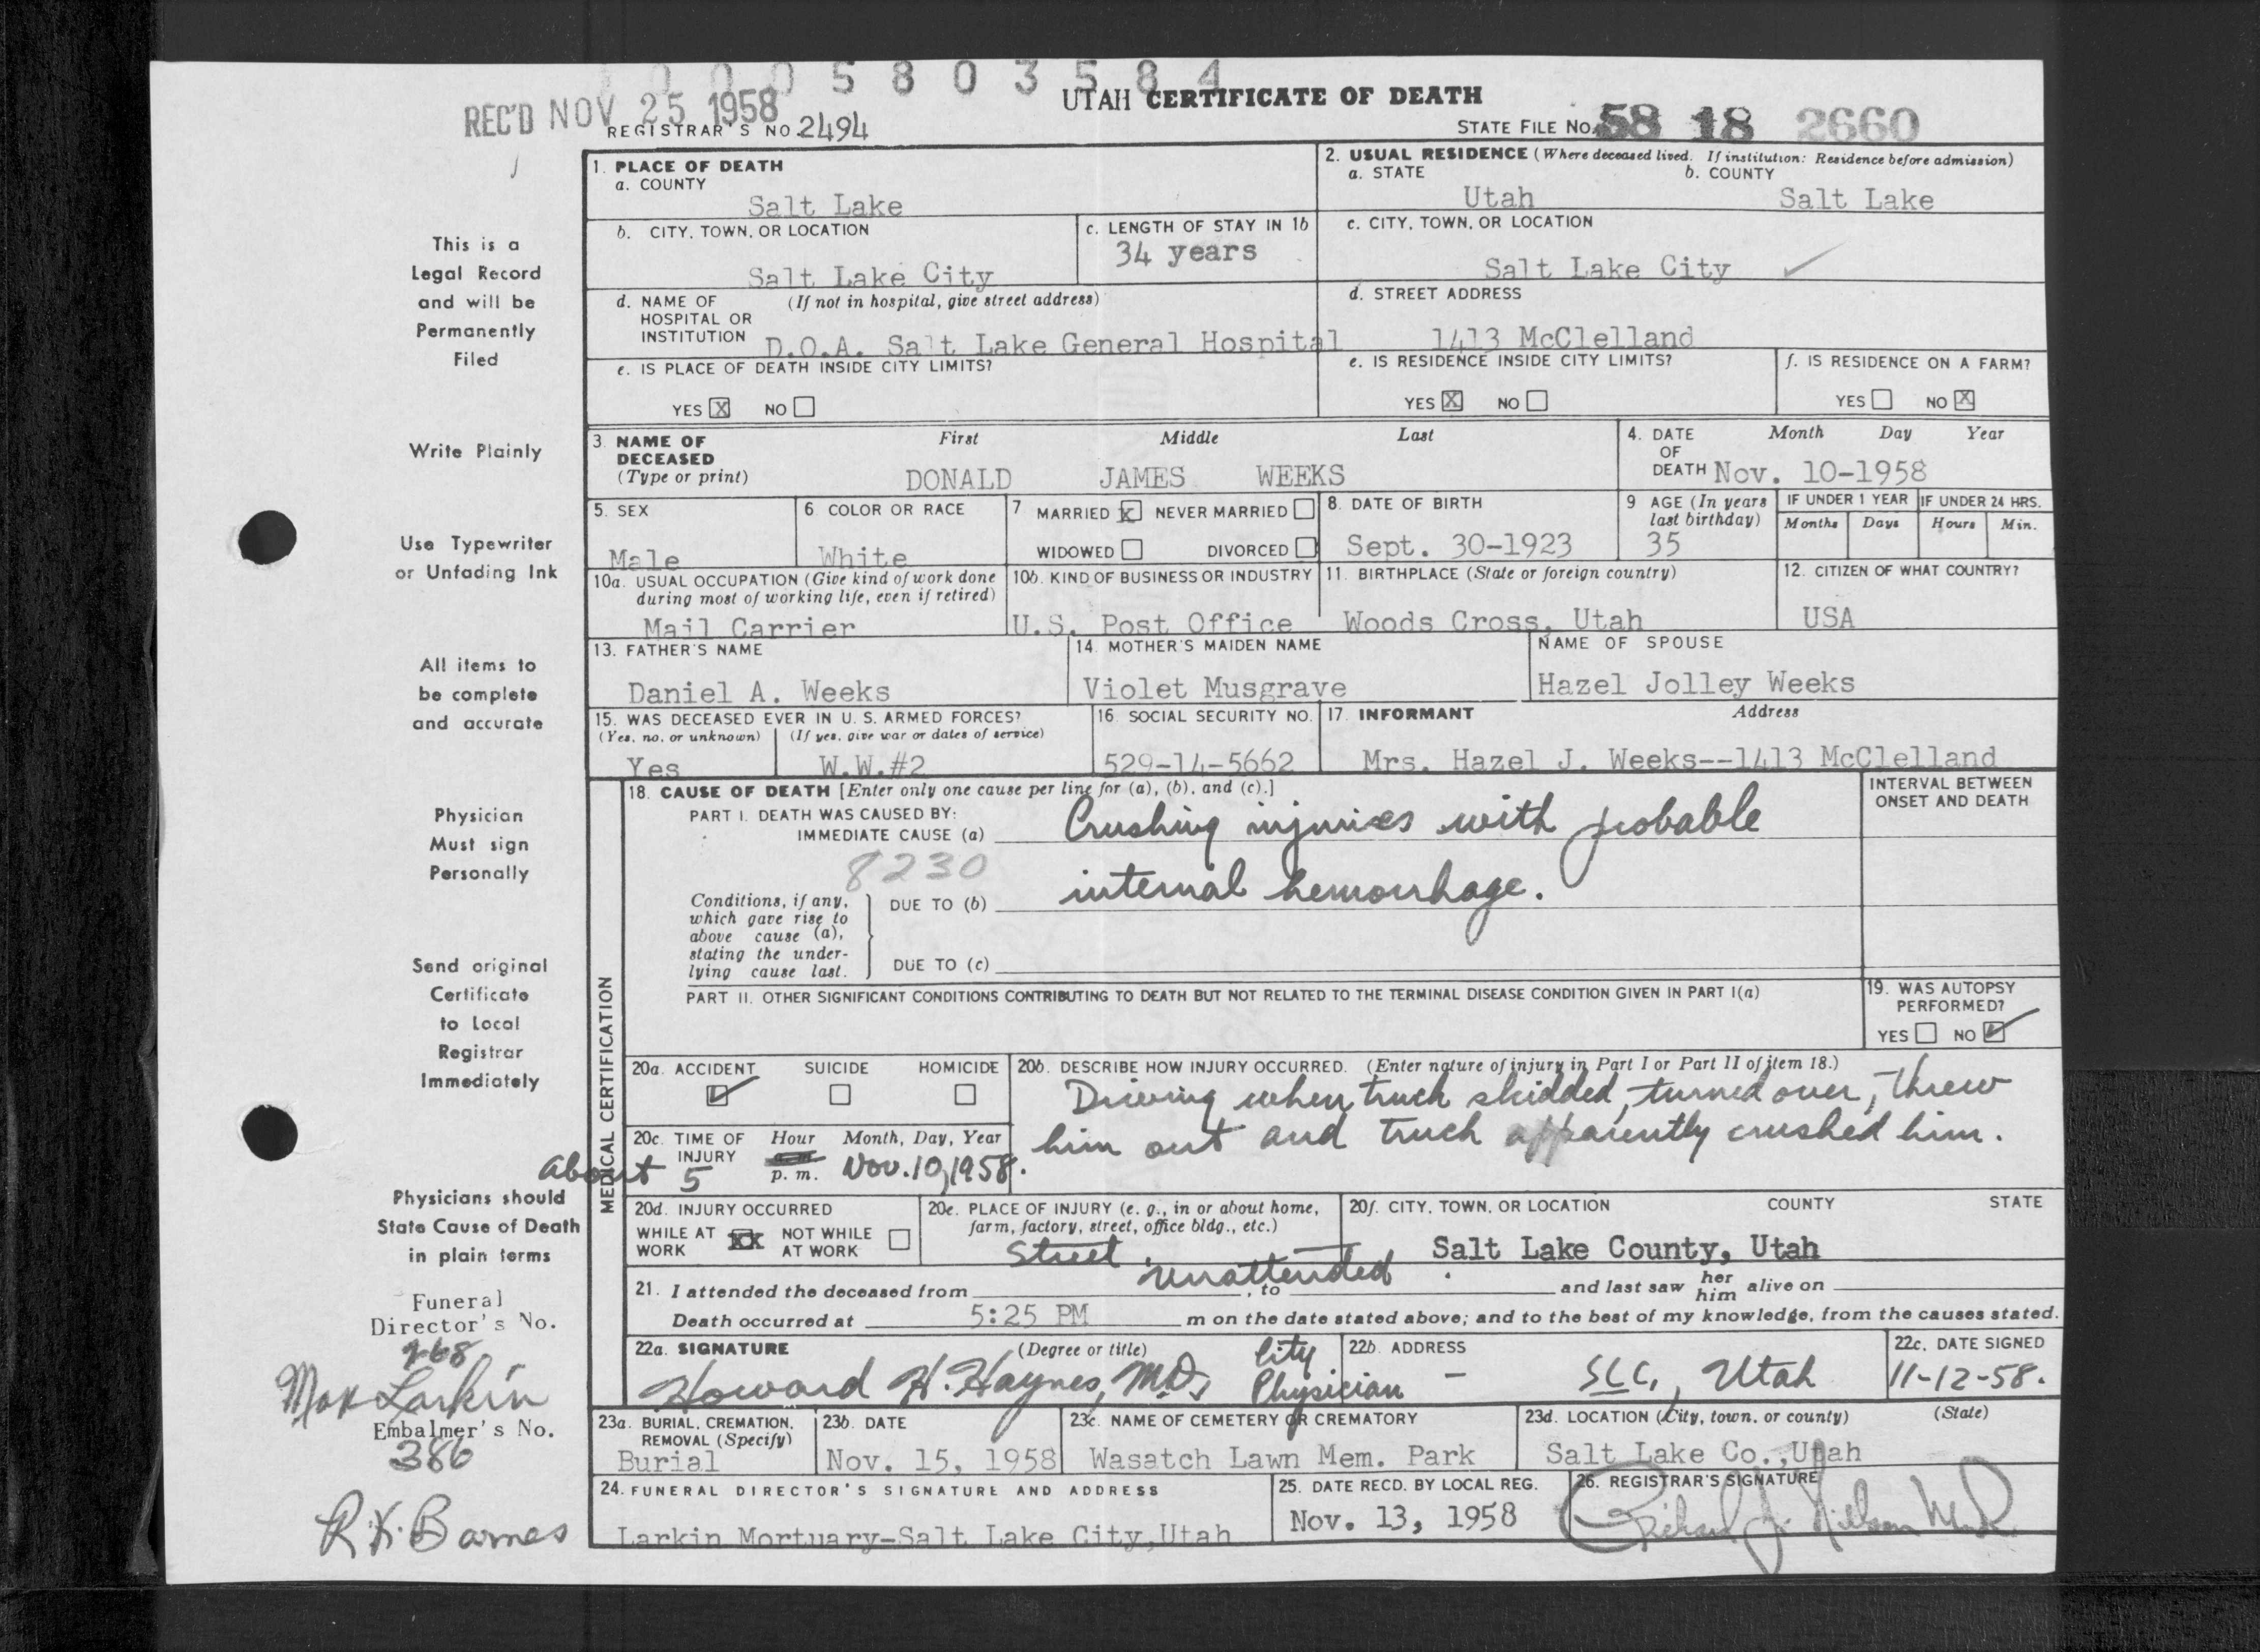 0 0 0 5 8 0 3 5 8 4
REC'D NOV 25 1958
UTAH CERTIFICATE OF DEATH
REGISTRAR'S NO. 2494
STATE FILE No. 58 18 2660
This is a
Legal Record
and will be
Permanently
Filed
Write Plainly
Use Typewriter
or Unfading Ink
All items to
be complete
and accurate
Physician
Must sign
Personally
Send original
Certificate
to Local
Registrar
Immediately
Physicians should
State Cause of Death
in plain terms
Funeral
Director's No.
268
Max Larkin
Embalmer's No.
386
R.K. Barnes
1. PLACE OF DEATH
a. COUNTY
Salt Lake
2. USUAL RESIDENCE (Where deceased lived. If institution: Residence before admission)
a. STATE b. COUNTY
Utah Salt Lake
b. CITY, TOWN, OR LOCATION
Salt Lake City
c. LENGTH OF STAY IN 1b
34 years
c. CITY, TOWN, OR LOCATION
Salt Lake City
d. NAME OF (If not in hospital, give street address)
HOSPITAL OR
INSTITUTION D.O.A. Salt Lake General Hospital
d. STREET ADDRESS
1413 McClelland
e. IS PLACE OF DEATH INSIDE CITY LIMITS?
YES X NO
e. IS RESIDENCE INSIDE CITY LIMITS?
YES X NO
f. IS RESIDENCE ON A FARM?
YES NO X
3. NAME OF First Middle Last
DECEASED
(Type or print) DONALD JAMES WEEKS
4. DATE Month Day Year
OF
DEATH Nov. 10-1958
5. SEX
Male
6. COLOR OR RACE
White
7 MARRIED X NEVER MARRIED
WIDOWED DIVORCED
8. DATE OF BIRTH
Sept. 30-1923
9 AGE (In years
last birthday)
35
IF UNDER 1 YEAR IF UNDER 24 HRS.
Months Days Hours Min.
10a. USUAL OCCUPATION (Give kind of work done
during most of working life, even if retired)
Mail Carrier
10b. KIND OF BUSINESS OR INDUSTRY
U.S. Post Office
11. BIRTHPLACE (State or foreign country)
Woods Cross, Utah
12. CITIZEN OF WHAT COUNTRY?
USA
13. FATHER'S NAME
Daniel A. Weeks
14. MOTHER'S MAIDEN NAME
Violet Musgrave
NAME OF SPOUSE
Hazel Jolley Weeks
15. WAS DECEASED EVER IN U. S. ARMED FORCES?
(Yes, no, or unknown) (If yes, give war or dates of service)
Yes W.W.#2
16. SOCIAL SECURITY NO.
529-14-5662
17. INFORMANT Address
Mrs. Hazel J. Weeks--1413 McClelland
MEDICAL CERTIFICATION
18. CAUSE OF DEATH [Enter only one cause per line for (a), (b), and (c).]
PART I. DEATH WAS CAUSED BY:
IMMEDIATE CAUSE (a) Crushing injuries with probable
8230
Conditions, if any,
which gave rise to
above cause (a),
stating the under-
lying cause last.
DUE TO (b) internal hemorrhage.
DUE TO (c)
INTERVAL BETWEEN
ONSET AND DEATH
PART II. OTHER SIGNIFICANT CONDITIONS CONTRIBUTING TO DEATH BUT NOT RELATED TO THE TERMINAL DISEASE CONDITION GIVEN IN PART I(a)
19. WAS AUTOPSY
PERFORMED?
YES NO ✓
20a. ACCIDENT SUICIDE HOMICIDE
✓
20b. DESCRIBE HOW INJURY OCCURRED. (Enter nature of injury in Part I or Part II of item 18.)
Driving when truck skidded, turned over, threw
him out and truck apparently crushed him.
20c. TIME OF Hour Month, Day, Year
INJURY a. m.
about 5 p. m. Nov. 10, 1958.
20d. INJURY OCCURRED
WHILE AT XX NOT WHILE
WORK AT WORK
20e. PLACE OF INJURY (e. g., in or about home,
farm, factory, street, office bldg., etc.)
Street
20f. CITY, TOWN, OR LOCATION COUNTY STATE
Salt Lake County, Utah
21. I attended the deceased from unattended, to and last saw her him alive on
Death occurred at 5:25 PM m on the date stated above; and to the best of my knowledge, from the causes stated.
22a. SIGNATURE (Degree or title)
Howard H. Haynes, M.D., City Physician
22b. ADDRESS
- SLC, Utah
22c. DATE SIGNED
11-12-58.
23a. BURIAL, CREMATION,
REMOVAL (Specify)
Burial
23b. DATE
Nov. 15, 1958
23c. NAME OF CEMETERY OR CREMATORY
Wasatch Lawn Mem. Park
23d. LOCATION (City, town, or county) (State)
Salt Lake Co., Utah
24. FUNERAL DIRECTOR'S SIGNATURE AND ADDRESS
Larkin Mortuary-Salt Lake City, Utah
25. DATE RECD. BY LOCAL REG.
Nov. 13, 1958
26. REGISTRAR'S SIGNATURE
Richard J. Nielson M.D.